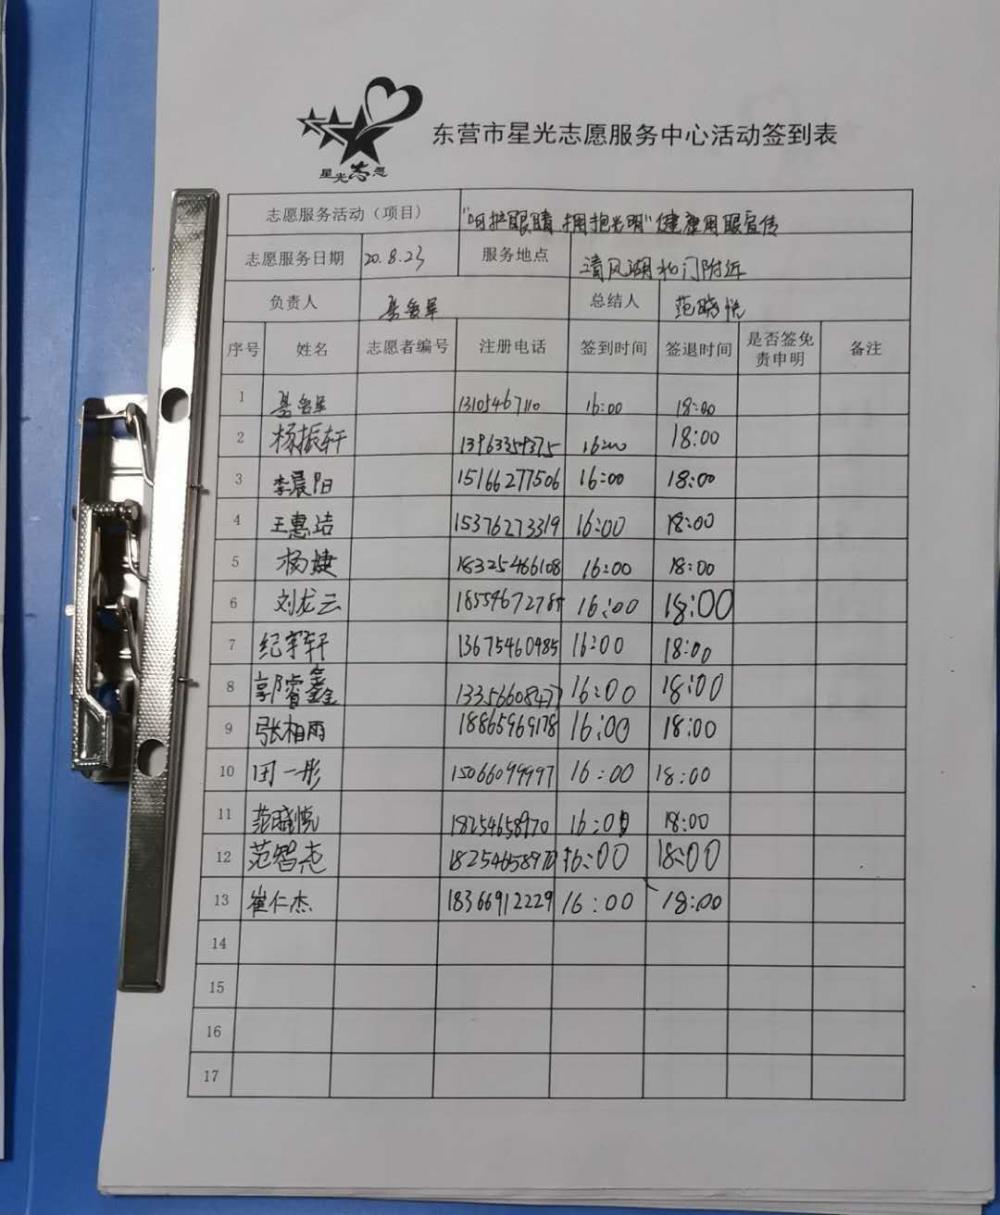 星光志愿
东营市星光志愿服务中心活动签到表
志愿服务活动（项目） "呵护眼睛 拥抱光明"健康用眼宣传
志愿服务日期 20.8.23 服务地点 清风湖北门附近
负责人 总结人 范晓悦
序号 姓名 志愿者编号 注册电话 签到时间 签退时间 是否签免责申明 备注
1 13105467110 16:00 18:00
2 杨振轩 13963359375 16:00 18:00
3 李晨阳 15166277506 16:00 18:00
4 王惠洁 15376273319 16:00 18:00
5 杨婕 18325466108 16:00 18:00
6 刘龙云 18554672785 16:00 18:00
7 纪宇轩 13675460985 16:00 18:00
8 郭睿鑫 13356608477 16:00 18:00
9 张相雨 18865969178 16:00 18:00
10 田一彤 15066099997 16:00 18:00
11 范晓悦 18254658970 16:00 18:00
12 范智志 18254658970 16:00 18:00
13 崔仁杰 18366912229 16:00 18:00
14
15
16
17